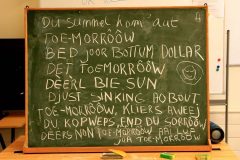 Du summel kom aut
TOE-MORRÔÔW
BED JOOR BOTTUM DOLLAR
DET TOEMORRÔÔW
DEERL BIE SUN
DJUST SINKING ABBOUT
TOE-MORRÔÔW KLIERS AWEEJ
DU KOPWEPS END DU SORRÔÔW
DEERS NUN
TOE-MORRÔÔW
JUR TOE-MORRÔÔW